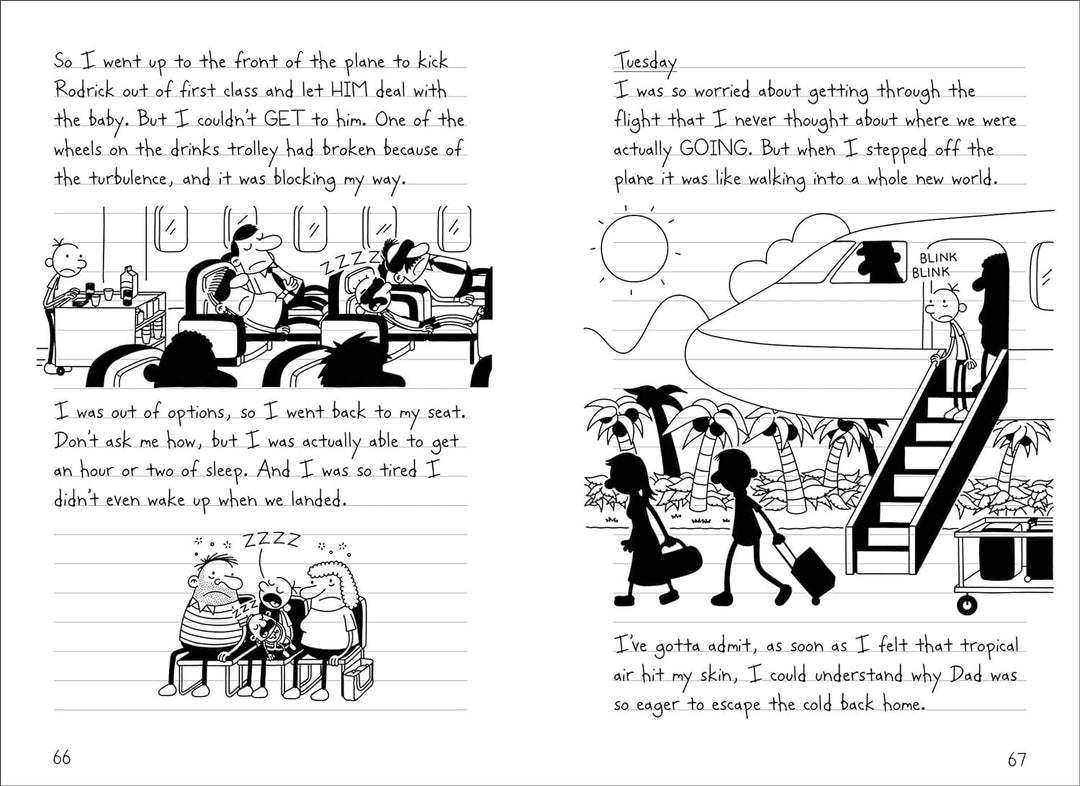 So I went up to the front of the plane to kick
Rodrick out of first class and let HIM deal with
the baby. But I couldn't GET to him. One of the
wheels on the drinks trolley had broken because of
the turbulence, and it was blocking my way.
ZZZZ
I was out of options, so I went back to my seat.
Don't ask me how, but I was actually able to get
an hour or two of sleep. And I was so tired I
didn't even wake up when we landed.
ZZZZ
ZZZ
66
Tuesday
I was so worried about getting through the
flight that I never thought about where we were
actually GOING. But when I stepped off the
plane it was like walking into a whole new world.
BLINK
BLINK
I've gotta admit, as soon as I felt that tropical
air hit my skin, I could understand why Dad was
so eager to escape the cold back home.
67